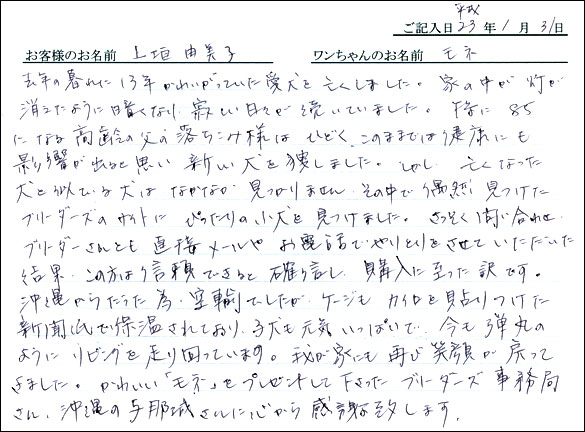 平成
ご記入日 23 年 1 月 31 日
お客様のお名前 上垣 由美子 ワンちゃんのお名前 モネ
去年の暮れに13年かわいがっていた愛犬を亡くしました。家の中が灯が
消えたように暗くなり、寂しい日々が続いていました。特に85
になる高齢の父の落ちこみ様はひどく、このままでは健康にも
影響が出ると思い新しい犬を捜しました。しかし、亡くなった
犬と似ている犬はなかなか見つかりません。その中で偶然見つけた
ブリーダーズのサイトにぴったりの小犬を見つけました。さっそく問い合わせ
ブリーダーさんとも直接メールやお電話でやりとりをさせていただいた
結果、この方なら信頼できると確信し、購入に至った訳です。
沖縄からだった為、空輸でしたが、ケージもカイロを貼りつけた
新聞紙で保温されており、子犬も元気いっぱいで、今も弾丸の
ようにリビングを走り回っています。我が家にも再び笑顔が戻って
きました。かわいい「モネ」をプレゼントして下さったブリーダーズ事務局
さん、沖縄の与那城さんに心から感謝致します。